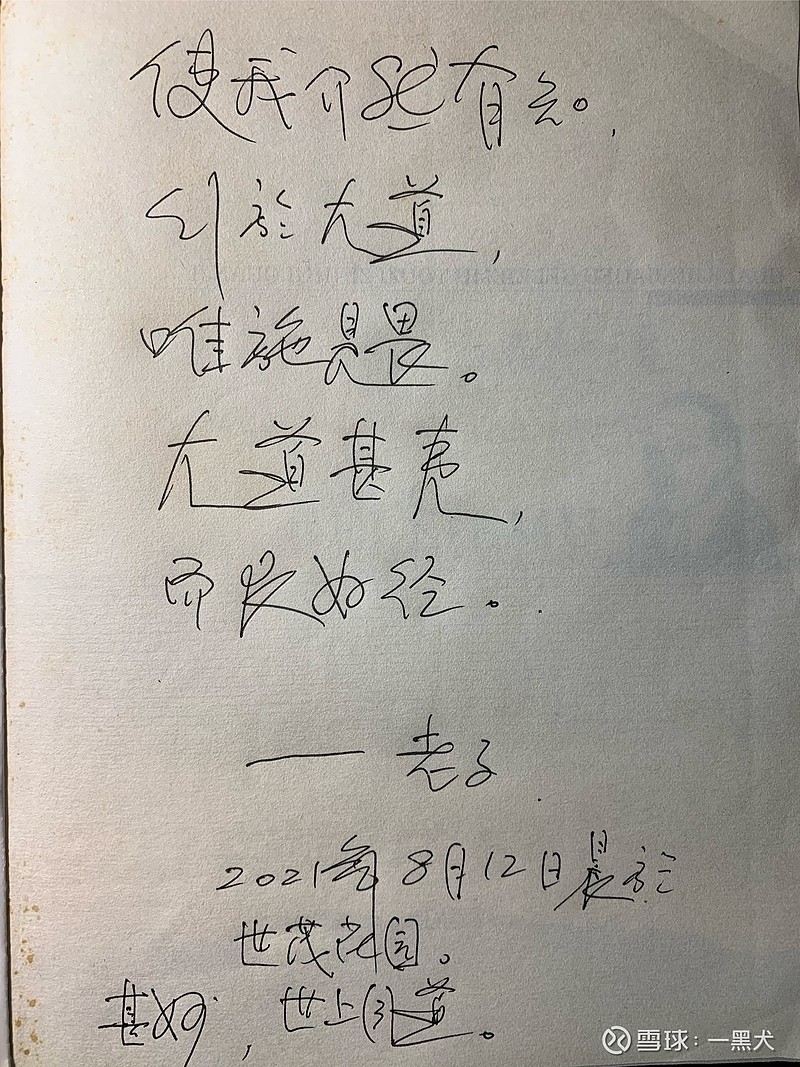 使我介然有知。,
行於大道,
唯施是畏。
大道甚夷,
而民好径。
—— 老子
2021年8月12日晨於
世茂花园。
甚好,世上有道。
雪球:一黑犬